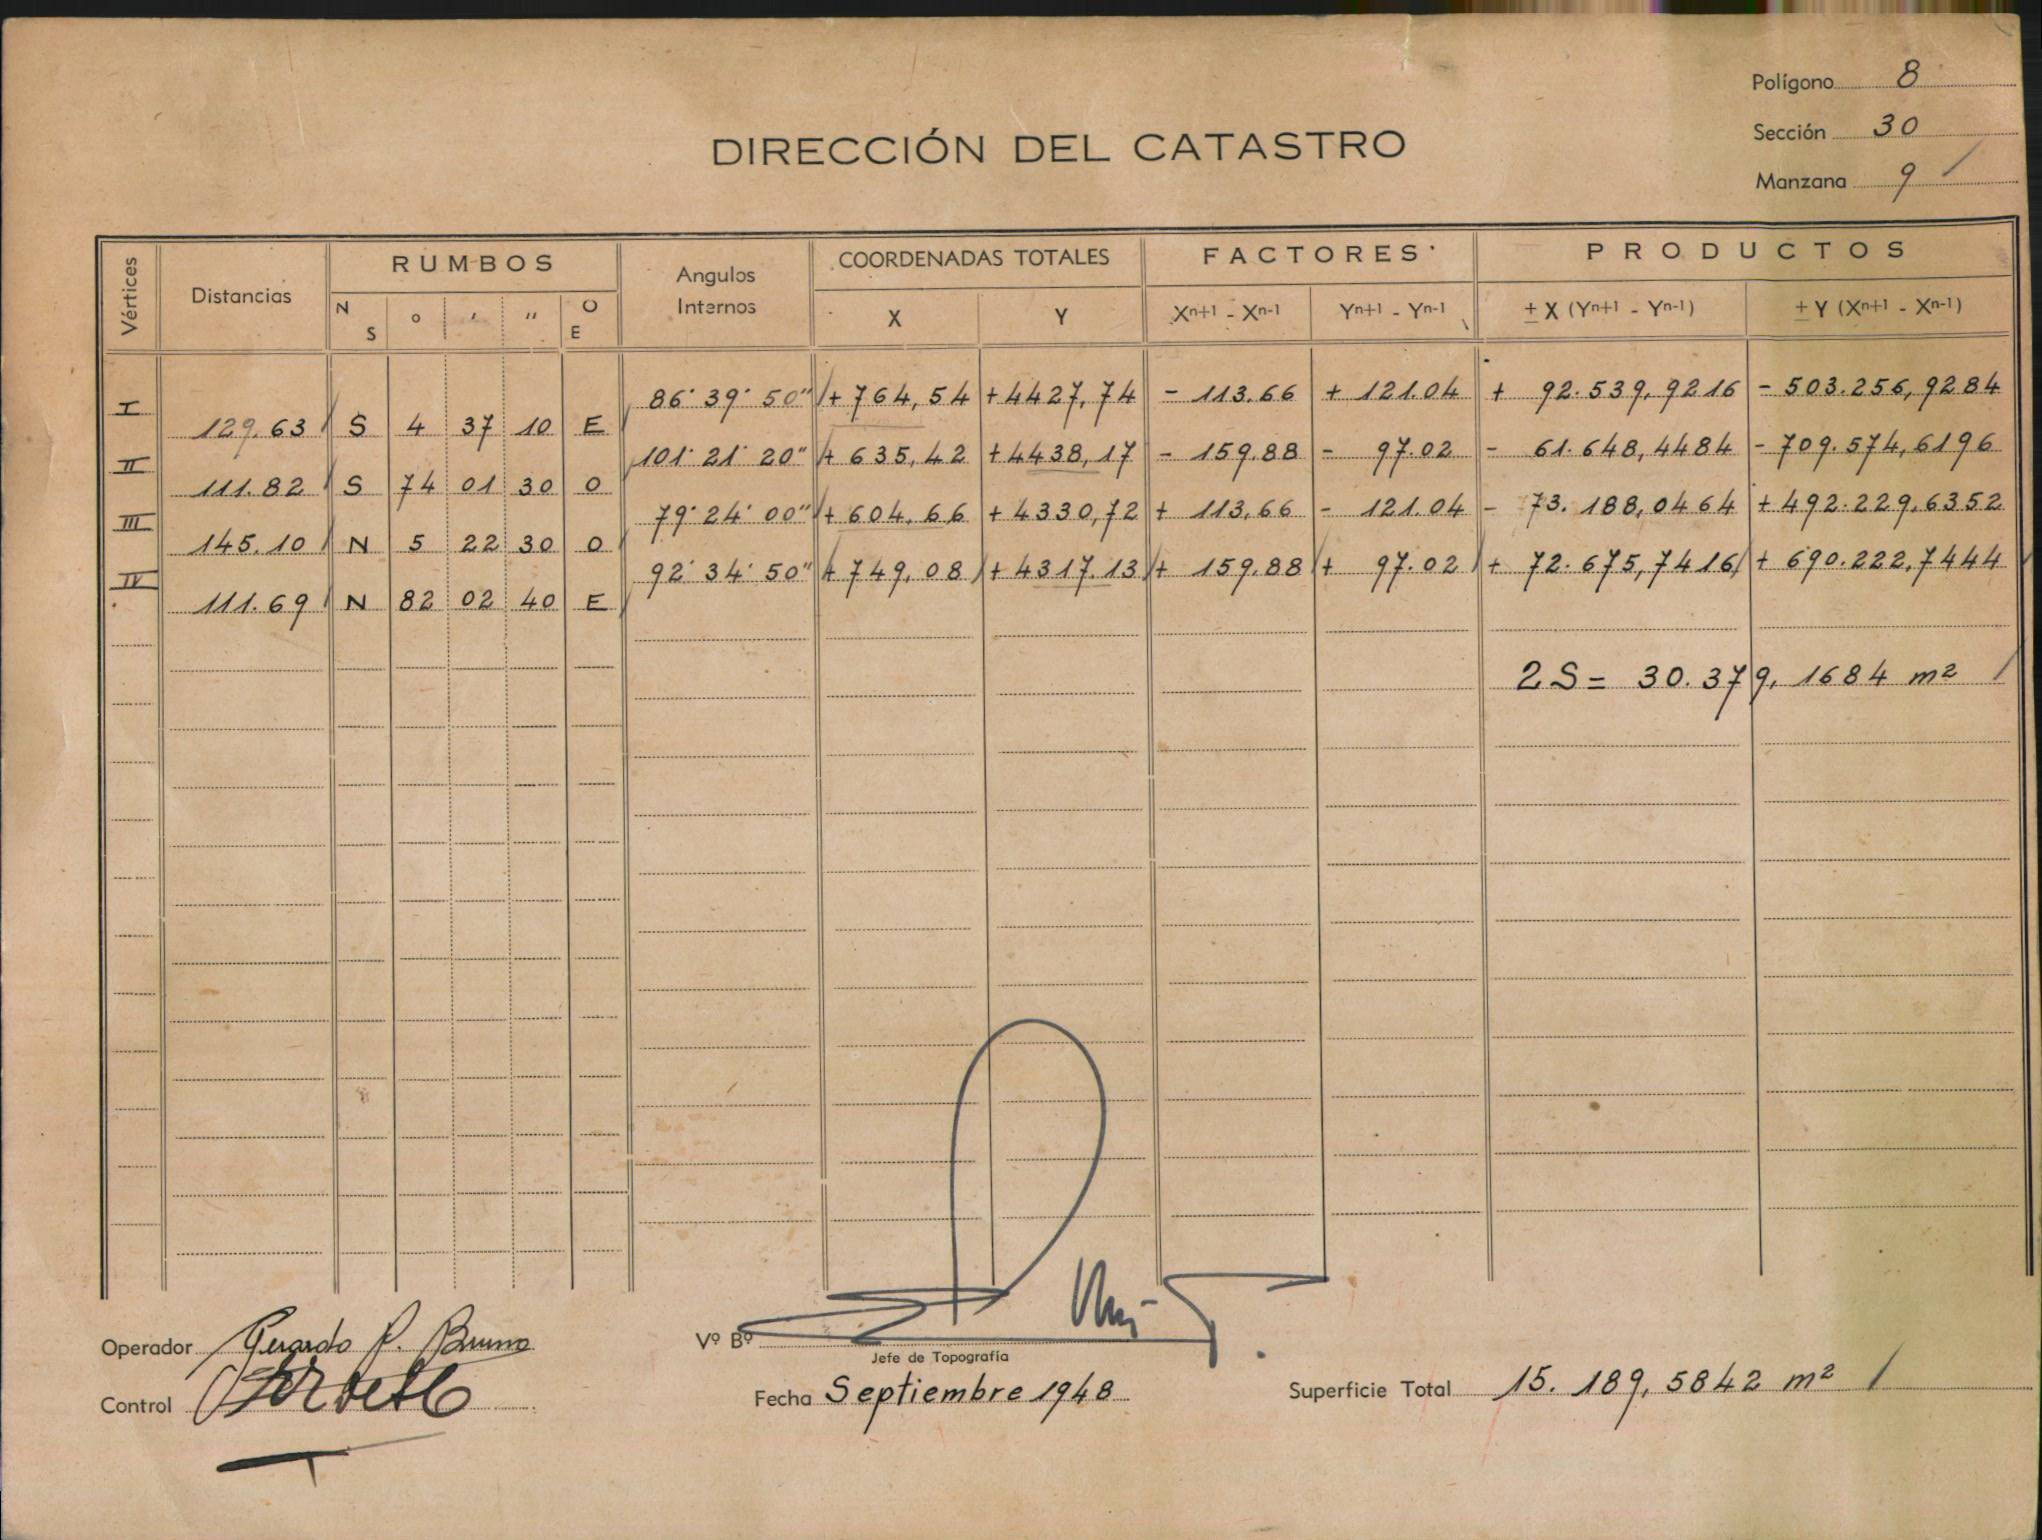 Polígono 8
Sección 30
Manzana 9
DIRECCIÓN DEL CATASTRO
Vértices Distancias RUMBOS Angulos Internos COORDENADAS TOTALES FACTORES PRODUCTOS
N S ° ' " O E X Y Xn+1 - Xn-1 Yn+1 - Yn-1 ± X (Yn+1 - Yn-1) ± Y (Xn+1 - Xn-1)
I 86° 39' 50" + 764,54 + 4427,74 - 113.66 + 121.04 + 92.539,9216 - 503.256,9284
129.63 S 4 37 10 E
II 101° 21' 20" + 635,42 + 4438,17 - 159.88 - 97.02 - 61.648,4484 - 709.574,6196
111.82 S 74 01 30 O
III 79° 24' 00" + 604.66 + 4330,72 + 113,66 - 121.04 - 73.188,0464 + 492.229,6352
145.10 N 5 22 30 O
IV 92° 34' 50" + 749,08 + 4317.13 + 159.88 + 97.02 + 72.675,7416 + 690.222,7444
111.69 N 82 02 40 E
2S = 30.379,1684 m²
Operador Gerardo P. Bruno
Vº Bº
Jefe de Topografía
Control
Fecha Septiembre 1948
Superficie Total 15.189,5842 m²